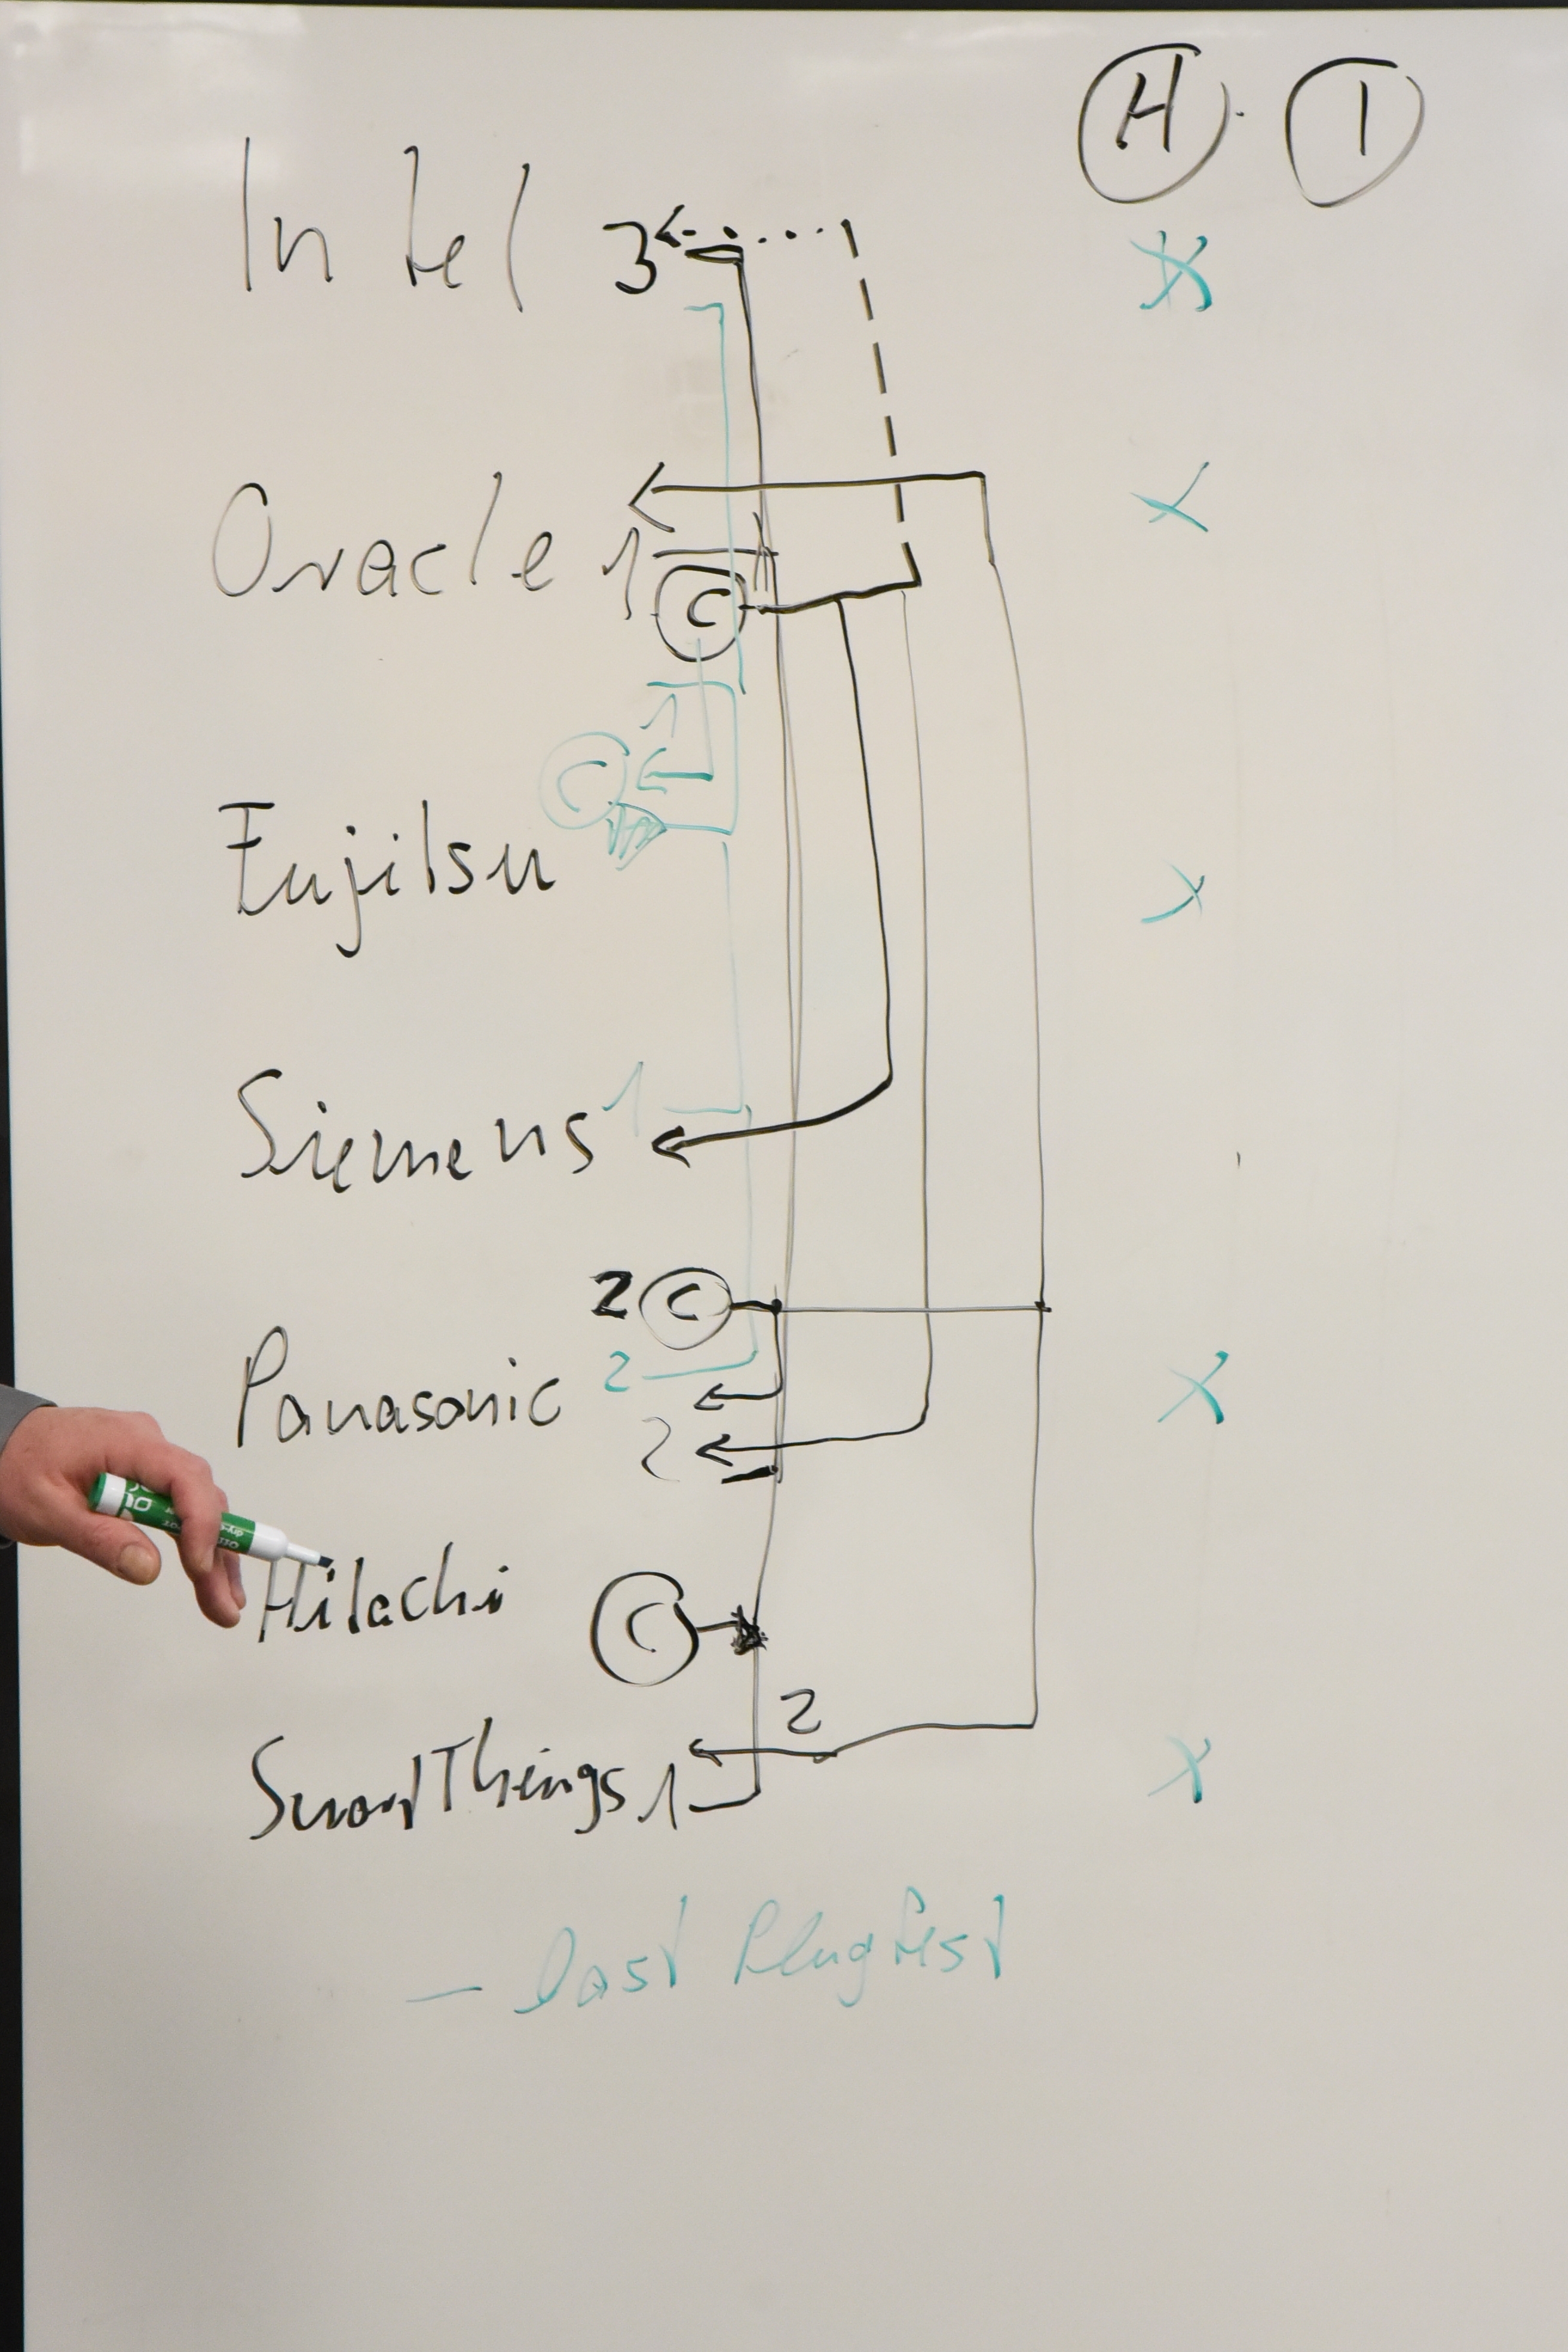 H 1
Intel 3
Oracle 1
C
1
C
Fujitsu
Siemens 1
2 C
2
Panasonic
2
Hitachi C
2
SmartThings 1
- Last Plugfest